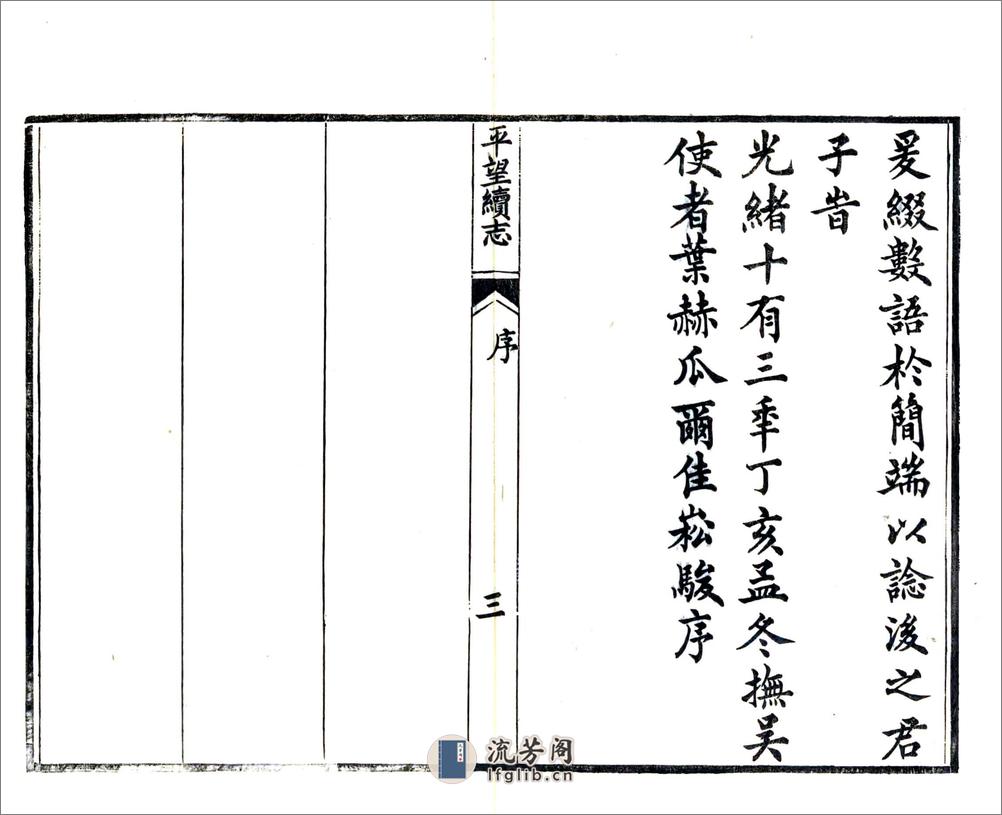 爰綴數語於簡端以諗後之君
子旹
光緒十有三秊丁亥孟冬撫吴
使者葉赫瓜爾佳崧駿序
平望續志
序
三
流芳阁
lfglib.cn